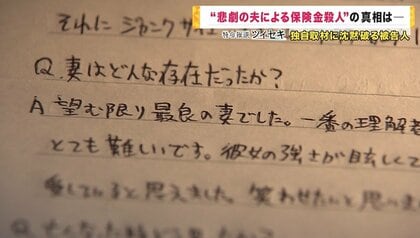 "悲劇の夫による保険金殺人"の真相は―
ツイセキ 独自取材に沈黙破る被告人
それに
Q 妻はどんな存在だったか?
A 望む限り最良の妻でした。一番の理解者
とても難しいです。彼女の強さが眩しくて
愛していると思えました。笑わせたいと思いま